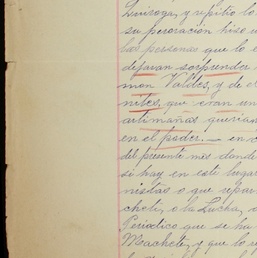 Quiroga, y repitio lo
su peroracion hizo u
las personas que lo e
dejaran sorprender
mon Valdes, y de o
nites, que eran un
artimañas querias
en el poder. — en c
del presente mes donde
si hay en este lugar
nistas o que repar
chete, o la Lucha, o
Periodico que se ha
Machete, y que lo re